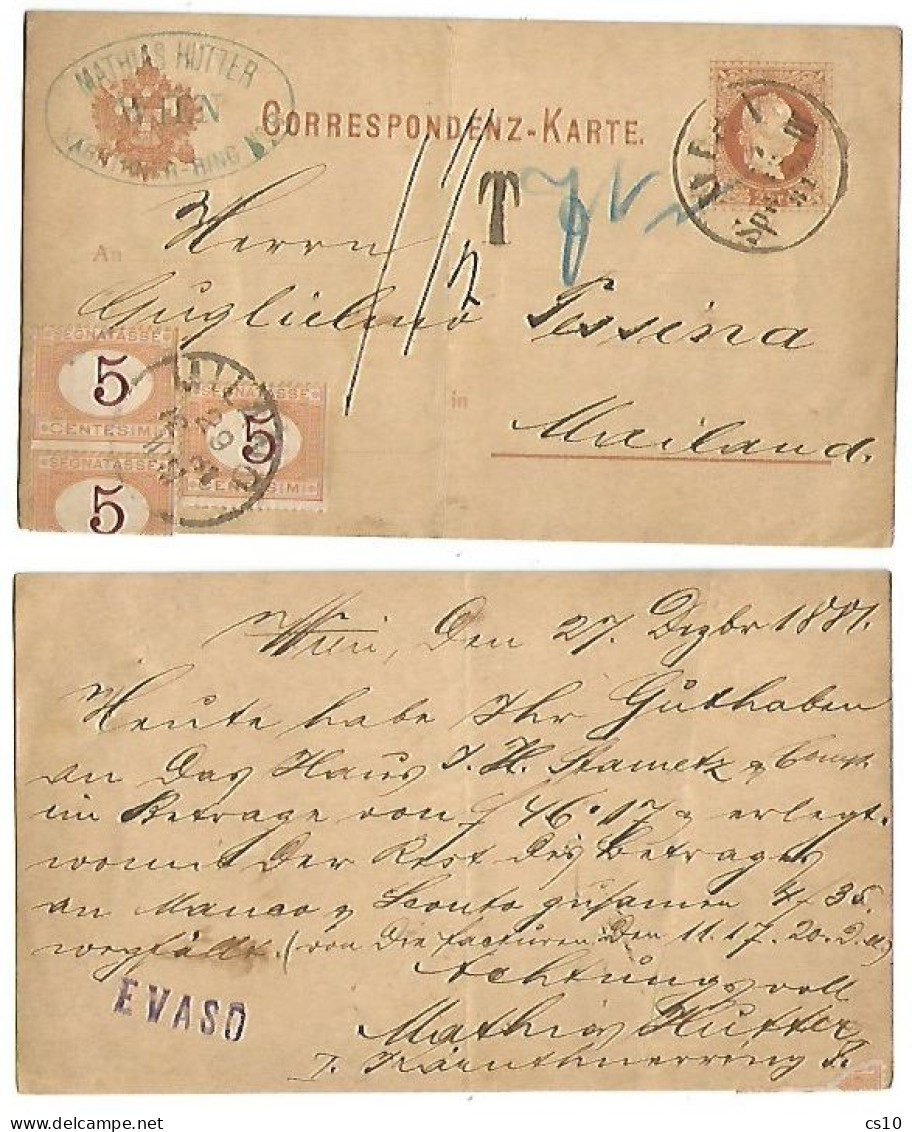 MATHIAS HUTTER
WIEN
CORRESPONDENZ-KARTE.
T
An
Herrn
Guglielmo Tessina
in
Mailand.
SEGNATASSE
5
CENTESIMI
SEGNATASSE
5
CENTESIMI
SEGNATASSE
5
MILANO
29
Wien, den 27. Dezbr 1881.
Heute habe Ihr Guthaben
an das Haus J. H. Stametz & Comp
im Betrage von f 46.17 erlegt.
womit der Rest des Betrages
an Manco & Sconto zusamen f 35.
wegfällt. (von die facturen den 11. 17. 20. 2.
Achtungsvoll
Mathias Hutter
I. Kärnthnerring 8.
EVASO
cs10